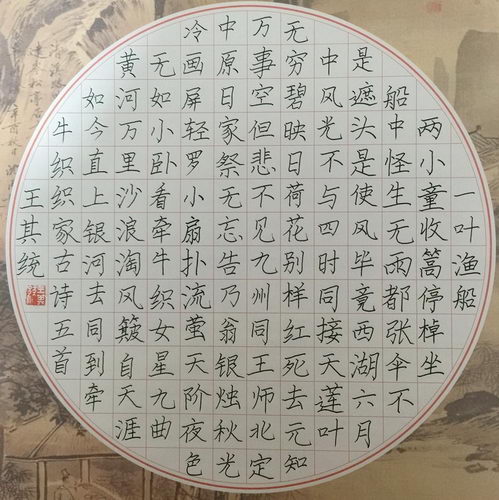 一叶渔船
两小童收篙停棹坐
船中怪生无雨都张伞不
是遮头是使风毕竟西湖六月
中风光不与四时同接天莲叶
无穷碧映日荷花别样红死去元知
万事空但悲不见九州同王师北定
中原日家祭无忘告乃翁银烛秋光
冷画屏轻罗小扇扑流萤天阶夜色
无如小卧看牵牛织女星九曲
黄河万里沙浪淘风簸自天涯
如今直上银河去同到牵
牛织织家古诗五首
王其统